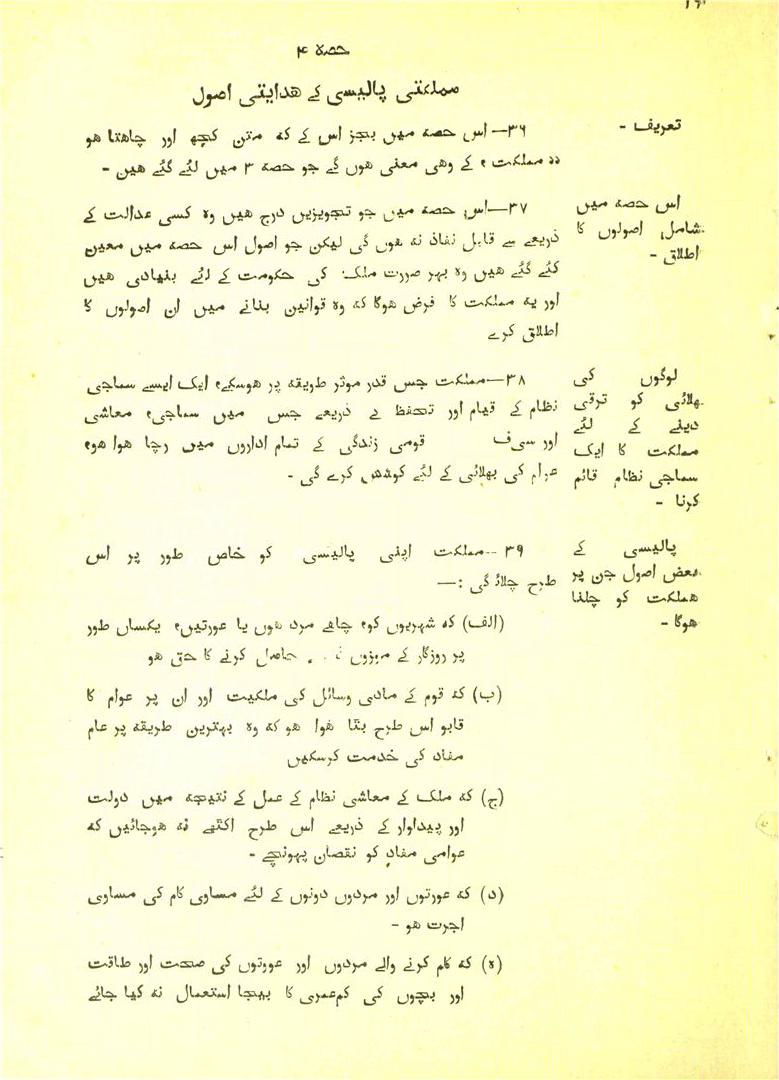 حصہ ۴
مملکتی پالیسی کے ھدایتی اصول
تعریف -
۳۶—اس حصہ میں بجز اس کے کہ متن کچھ اور چاھتا ھو
دد مملکت ، کے وھی معنی ھوں گے جو حصہ ۳ میں لئے گئے ھین -
اس حصہ میں
شامل اصولوں کا
اطلاق -
۳۷—اس حصہ میں جو تجویزیں درج ھیں وہ کسی عدالت کے
ذریعے سے قابل نفاذ نہ ھوں گی لیکن جو اصول اس حصہ میں معین
کئے گئے ھیں وہ بہر صورت ملک کی حکومت کے لئے بنیادی ھیں
اور یہ مملکت کا فرض ھوگا کہ وہ قوانین بنانے میں ان اصولوں کا
اطلاق کرے
لوگوں کی
بھلائی کو ترقی
دینے کے لئے
مملکت کا ایک
سماجی نظام قائم
کرنا -
۳۸—مملکت جس قدر موثر طریقہ پر ھوسکے، ایک ایسے سماجی
نظام کے قیام اور تحفظ کے ذریعے جس میں سماجی، معاشی
اور قومی زندگی کے تمام اداروں میں رچا ھوا ھو،
عوام کی بھلائی کے لئے کوشش کرے گی -
پالیسی کے
بعض اصول جن پر
مملکت کو چلنا
ھوگا -
۳۹--مملکت اپنی پالیسی کو خاص طور پر اس
طرح چلائے گی :—
(الف) کہ شہریوں کو، چاھے مرد ھوں یا عورتیں، یکساں طور
پر روزگار کے حاصل کرنے کا حق ھو
(ب) کہ قوم کے مادی وسائل کی ملکیت اور ان پر عوام کا
قابو اس طرح بٹا ھوا ھو کہ وہ بہترین طریقہ پر عام
مفاد کی خدمت کرسکیں
(ج) کہ ملک کے معاشی نظام کے عمل کے نتیجہ میں دولت
اور پیداوار کے ذریعے اس طرح اکٹھے نہ ھوجائیں کہ
عوامی مفاد کو نقصان پہونچے -
(د) کہ عورتوں اور مردوں دونوں کے لئے مساوی کام کی مساوی
اجرت ھو -
(ہ) کہ کام کرنے والے مردوں اور عووتوں کی صحت اور طاقت
اور بچوں کی کم عمری کا بیجا استعمال نہ کیا جائے